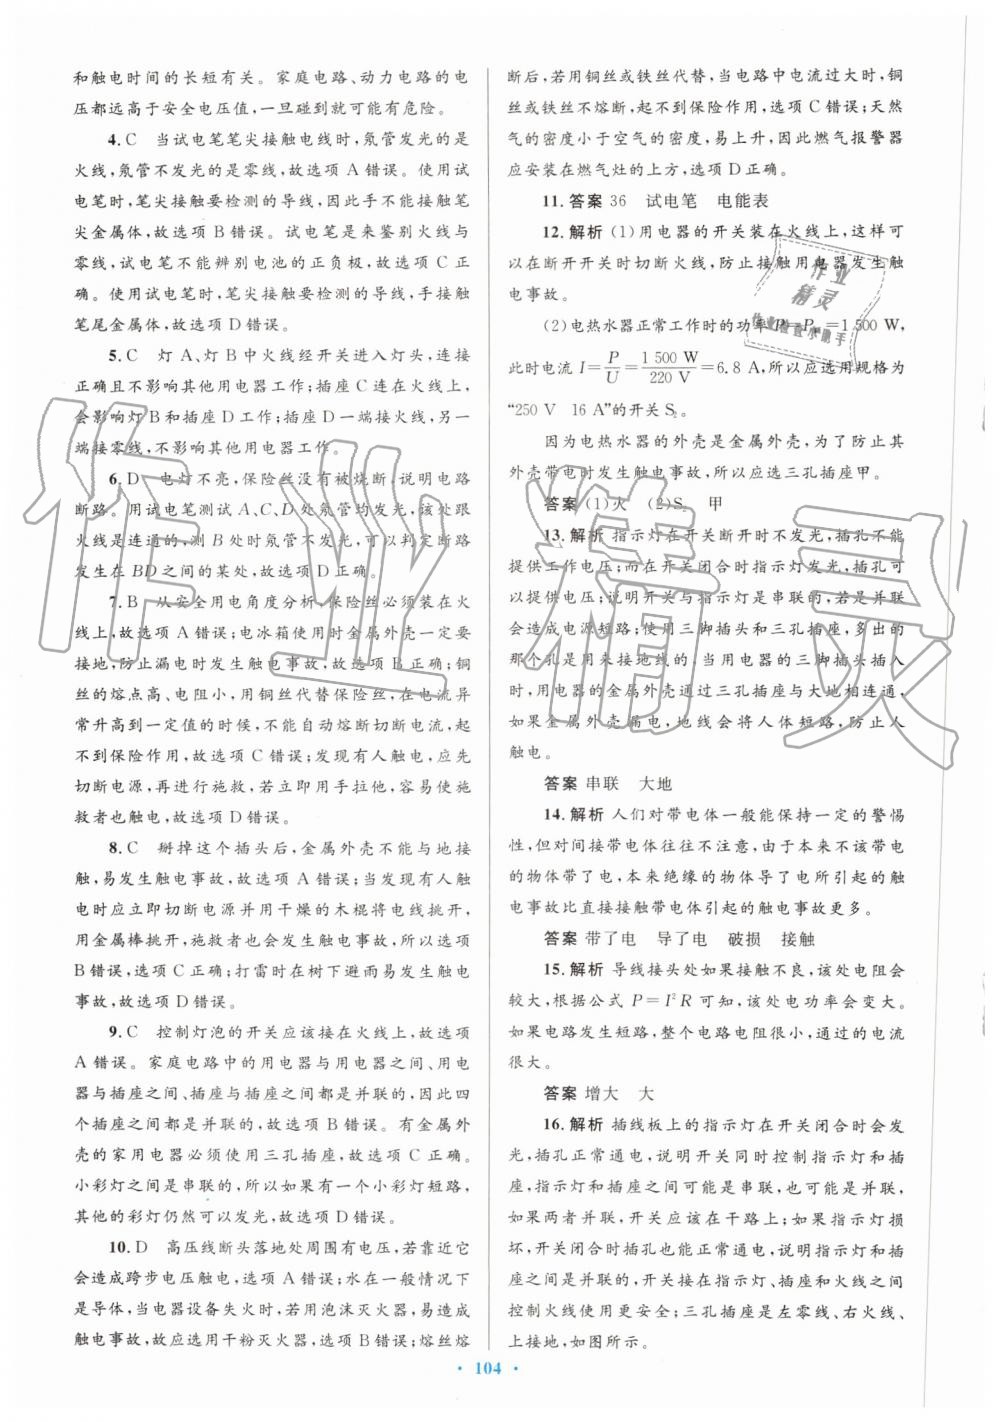 和触电时间的长短有关。家庭电路、动力电路的电
压都远高于安全电压值,一旦碰到就可能有危险。
4.C 当试电笔笔尖接触电线时,氖管发光的是
火线,氖管不发光的是零线,故选项A错误。使用试
电笔时,笔尖接触要检测的导线,因此手不能接触笔
尖金属体,故选项B错误。试电笔是来鉴别火线与
零线,试电笔不能辨别电池的正负极,故选项C正
确。使用试电笔时,笔尖接触要检测的导线,手接触
笔尾金属体,故选项D错误。
5.C 灯A、灯B中火线经开关进入灯头,连接
正确且不影响其他用电器工作;插座C连在火线上,
会影响灯B和插座D工作;插座D一端接火线,另一
端接零线,不影响其他用电器工作。
6.D 电灯不亮,保险丝没有被烧断,说明电路
断路。用试电笔测试A、C、D处氖管均发光,该处跟
火线是连通的,测B处时氖管不发光,可以判定断路
发生在BD之间的某处,故选项D正确。
7.B 从安全用电角度分析,保险丝必须装在火
线上,故选项A错误;电冰箱使用时金属外壳一定要
接地,防止漏电时发生触电事故,故选项B正确;铜
丝的熔点高、电阻小,用铜丝代替保险丝,在电流异
常升高到一定值的时候,不能自动熔断切断电流,起
不到保险作用,故选项C错误;发现有人触电,应先
切断电源,再进行施救,若立即用手拉他,会使施
救者也触电,故选项D错误。
8.C 掰掉这个插头后,金属外壳不能与地接
触,易发生触电事故,故选项A错误;当发现有人触
电时应立即切断电源并用干燥的木棍将电线挑开,
用金属棒挑开,施救者也会发生触电事故,故选项B
错误,选项C正确;打雷时在树下避雨易发生触电事
故,故选项D错误。
9.C 控制灯泡的开关应该接在火线上,故选项
A错误。家庭电路中的用电器与用电器之间、用电
器与插座之间、插座与插座之间都是并联的,因此四
个插座之间都是并联的,故选项B错误。有金属外
壳的家用电器必须使用三孔插座,故选项C正确。
小彩灯之间是串联的,如果有一个小彩灯短路,
其他的彩灯仍然可以发光,故选项D错误。
10.D 高压线断头落地处周围有电压,若靠近它
会造成跨步电压触电,选项A错误;水在一般情况下
是导体,当电器设备失火时,若用泡沫灭火器,易造成
触电事故,故应选用干粉灭火器,选项B错误;熔丝熔
断后,若用铜丝或铁丝代替,当电路中电流过大时,铜
丝或铁丝不熔断,起不到保险作用,选项C错误;天然
气的密度小于空气的密度,易上升,因此燃气报警器
应安装在燃气灶的上方,选项D正确。
11.答案 36 试电笔 电能表
12.解析 (1)用电器的开关装在火线上,这样可
以在断开开关时切断火线,防止接触用电器发生触
电事故。
(2)电热水器正常工作时的功率P=P额=1 500 W,
此时电流 I=P/U=1 500 W/220 V=6.8 A,所以应选用规格为
“250 V 16 A”的开关S₂。
因为电热水器的外壳是金属外壳,为了防止其
外壳带电时发生触电事故,所以应选三孔插座甲。
答案 (1)火 (2)S₂ 甲
13.解析 指示灯在开关断开时不发光,插孔不能
提供工作电压;而在开关闭合时指示灯发光,插孔可
以提供电压;说明开关与指示灯是串联的,若是并联
会造成电源短路;使用三脚插头和三孔插座,多出的
那个孔是用来接地线的,当用电器的三脚插头插入
时,用电器的金属外壳通过三孔插座与大地相连通,
如果金属外壳漏电,地线会将人体短路,防止人
触电。
答案 串联 大地
14.解析 人们对带电体一般能保持一定的警惕
性,但对间接带电体往往不注意,由于本来不该带电
的物体带了电,本来绝缘的物体导了电所引起的触
电事故比直接接触带电体引起的触电事故更多。
答案 带了电 导了电 破损 接触
15.解析 导线接头处如果接触不良,该处电阻会
较大,根据公式 P=I²R 可知,该处电功率会变大。
如果电路发生短路,整个电路电阻很小,通过的电流
很大。
答案 增大 大
16.解析 插线板上的指示灯在开关闭合时会发
光,插孔正常通电,说明开关同时控制指示灯和插
座,指示灯和插座之间可能是串联,也可能是并联,
如果两者并联,开关应该在干路上;如果指示灯损
坏,开关闭合时插孔也能正常通电,说明指示灯和
插座之间是并联的,开关接在指示灯、插座和火线之间
控制火线使用更安全;三孔插座是左零线、右火线、
上接地,如图所示。
· 104 ·
作业精灵
作业
精灵
作业检查小助手